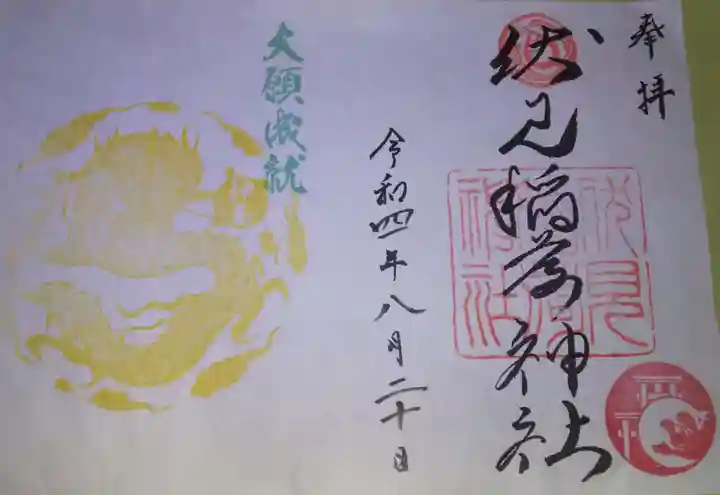 奉拝
伏見稲荷神社
伏見稲荷神社
令和四年八月二十日
大願成就